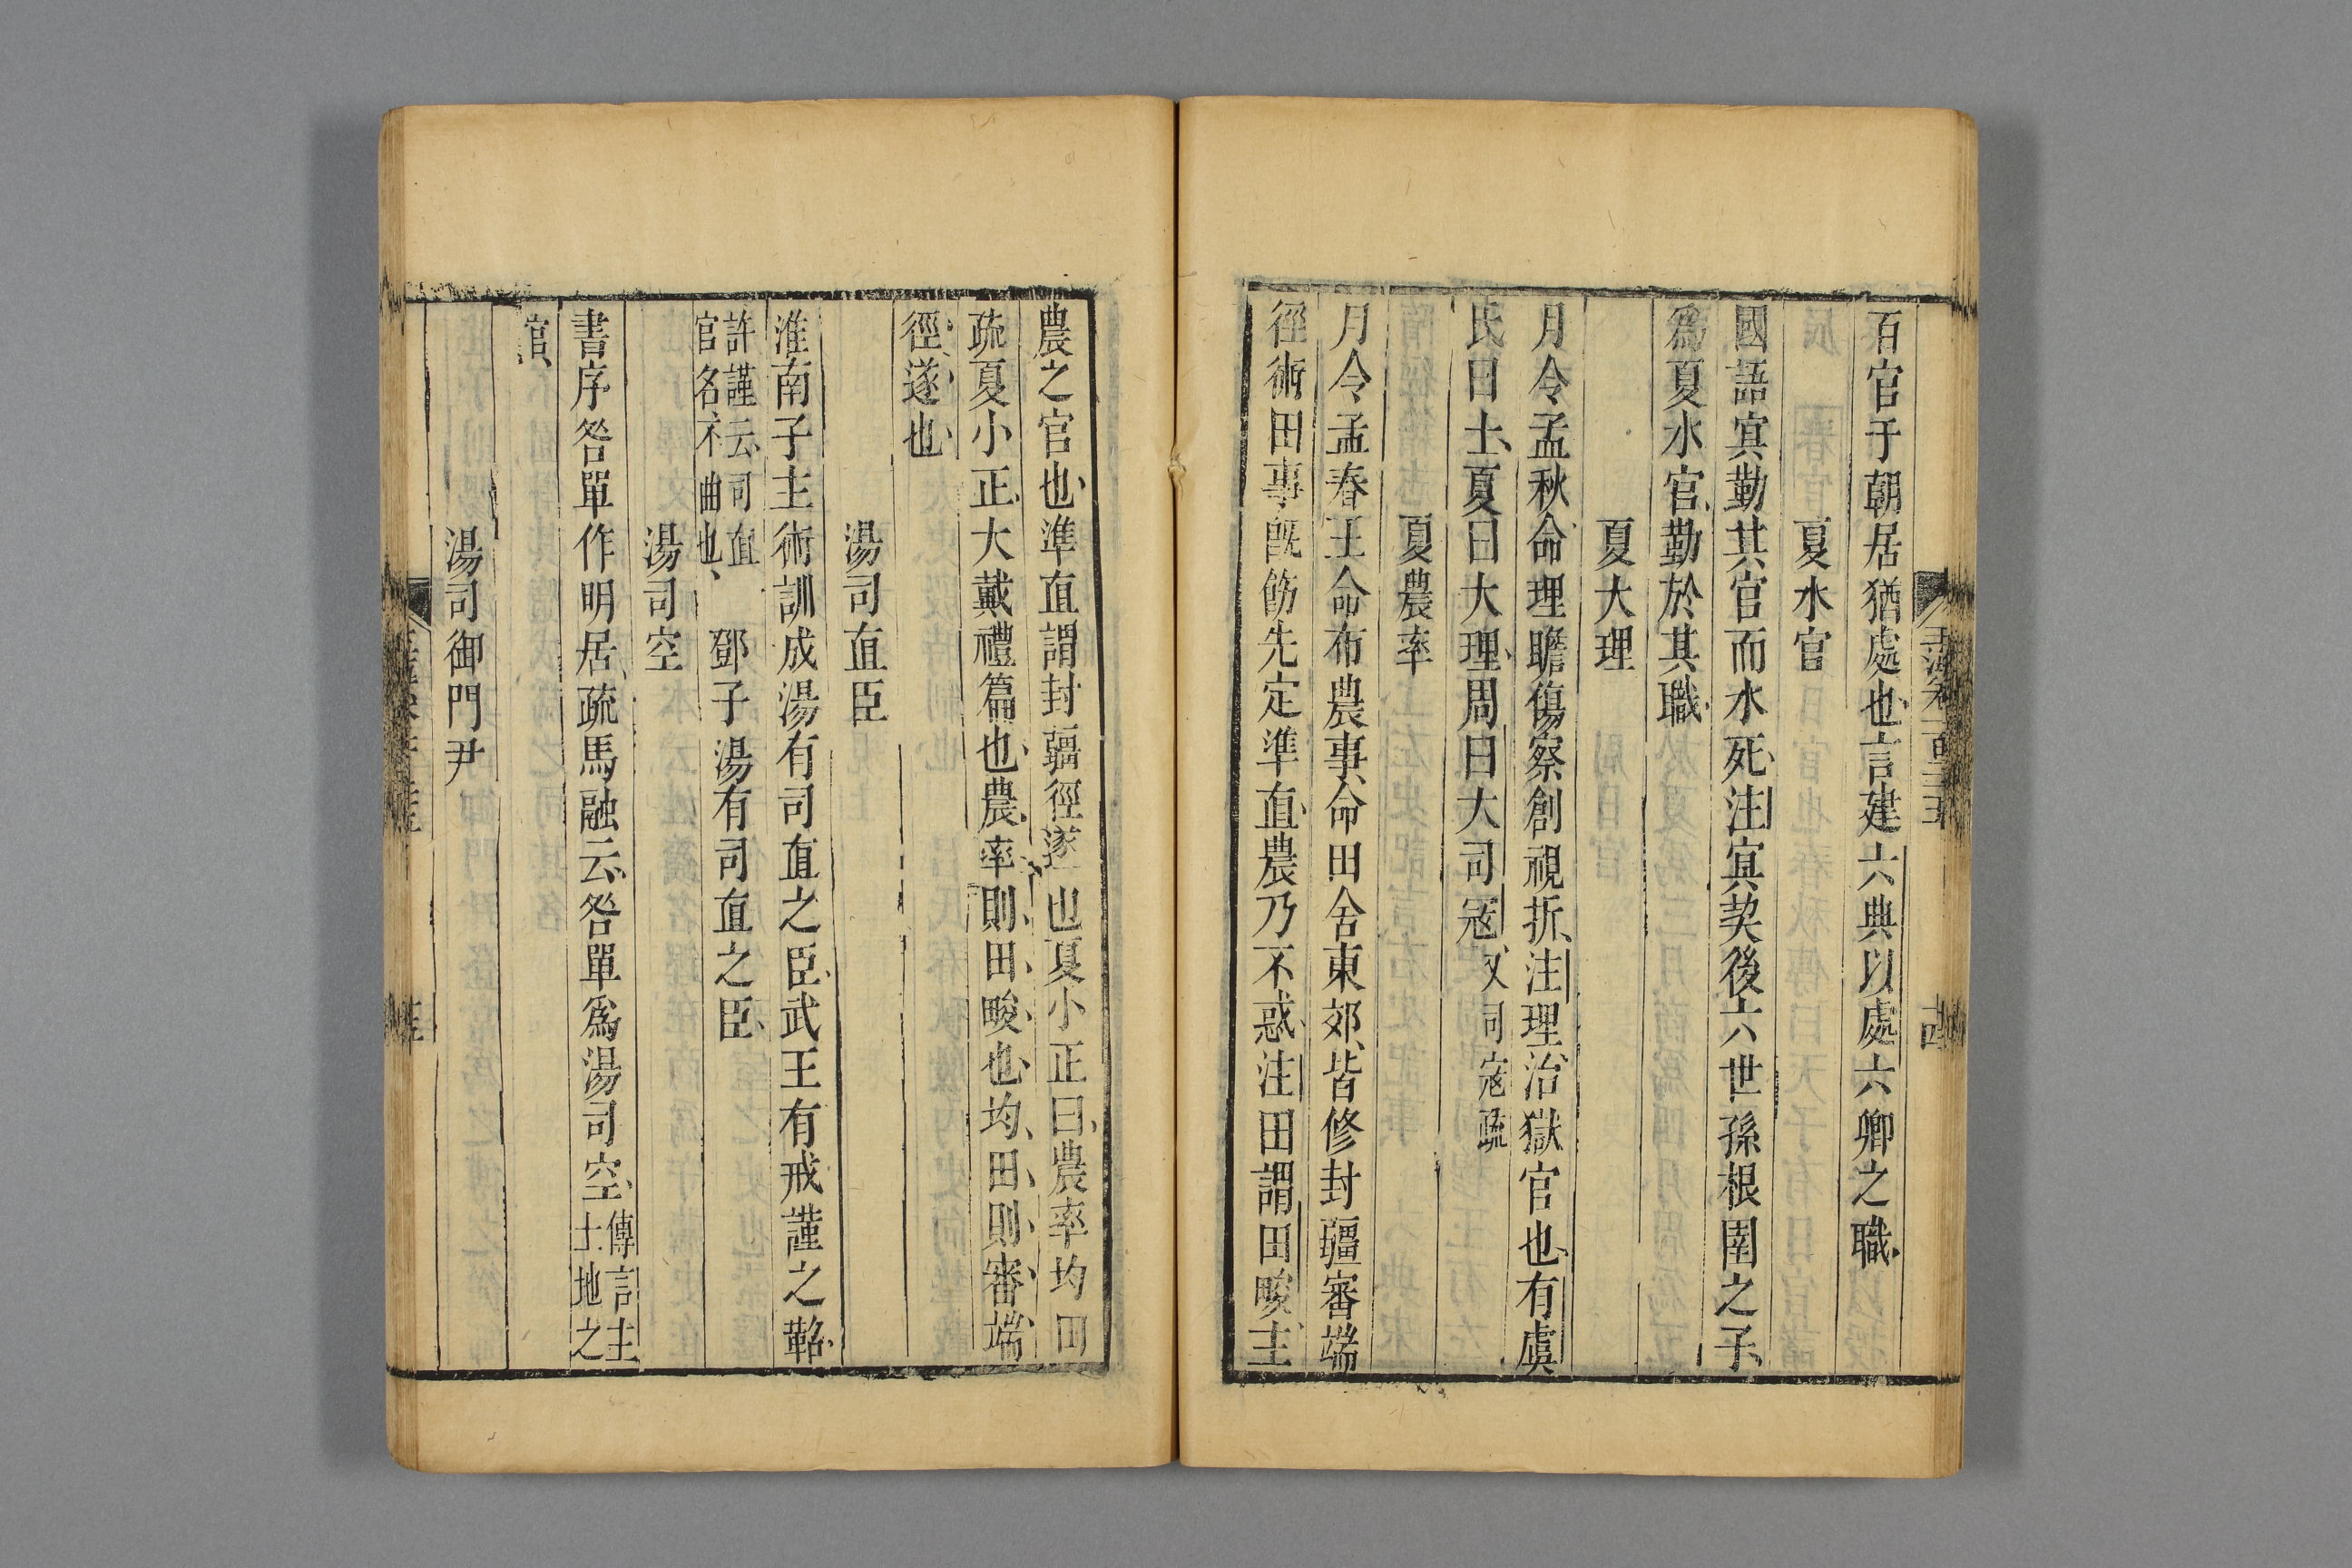 百官于朝居猶處也言建六典以處六卿之職
夏水官
國語㝠勤其官而水死注㝠契後六世孫根圉之子
爲夏水官勤於其職
夏大理
月令孟秋命理瞻傷察創視折注理治獄官也有虞
氏曰士夏曰大理周曰大司寇又司寇疏
夏農率
月令孟春王命布農事命田舍東郊皆修封疆審端
徑術田事旣飭先定準直農乃不惑注田謂田畯主
農之官也準直謂封疆徑遂也夏小正曰農率均田
疏夏小正大戴禮篇也農率則田畯也均田則審端
徑遂也
湯司直臣
淮南子主術訓成湯有司直之臣武王有戒謹之鞀
許謹云司直
官名不曲也
鄧子湯有司直之臣
湯司空
書序咎單作明居疏馬融云咎單爲湯司空
傳言主
土地之
官
湯司御門尹